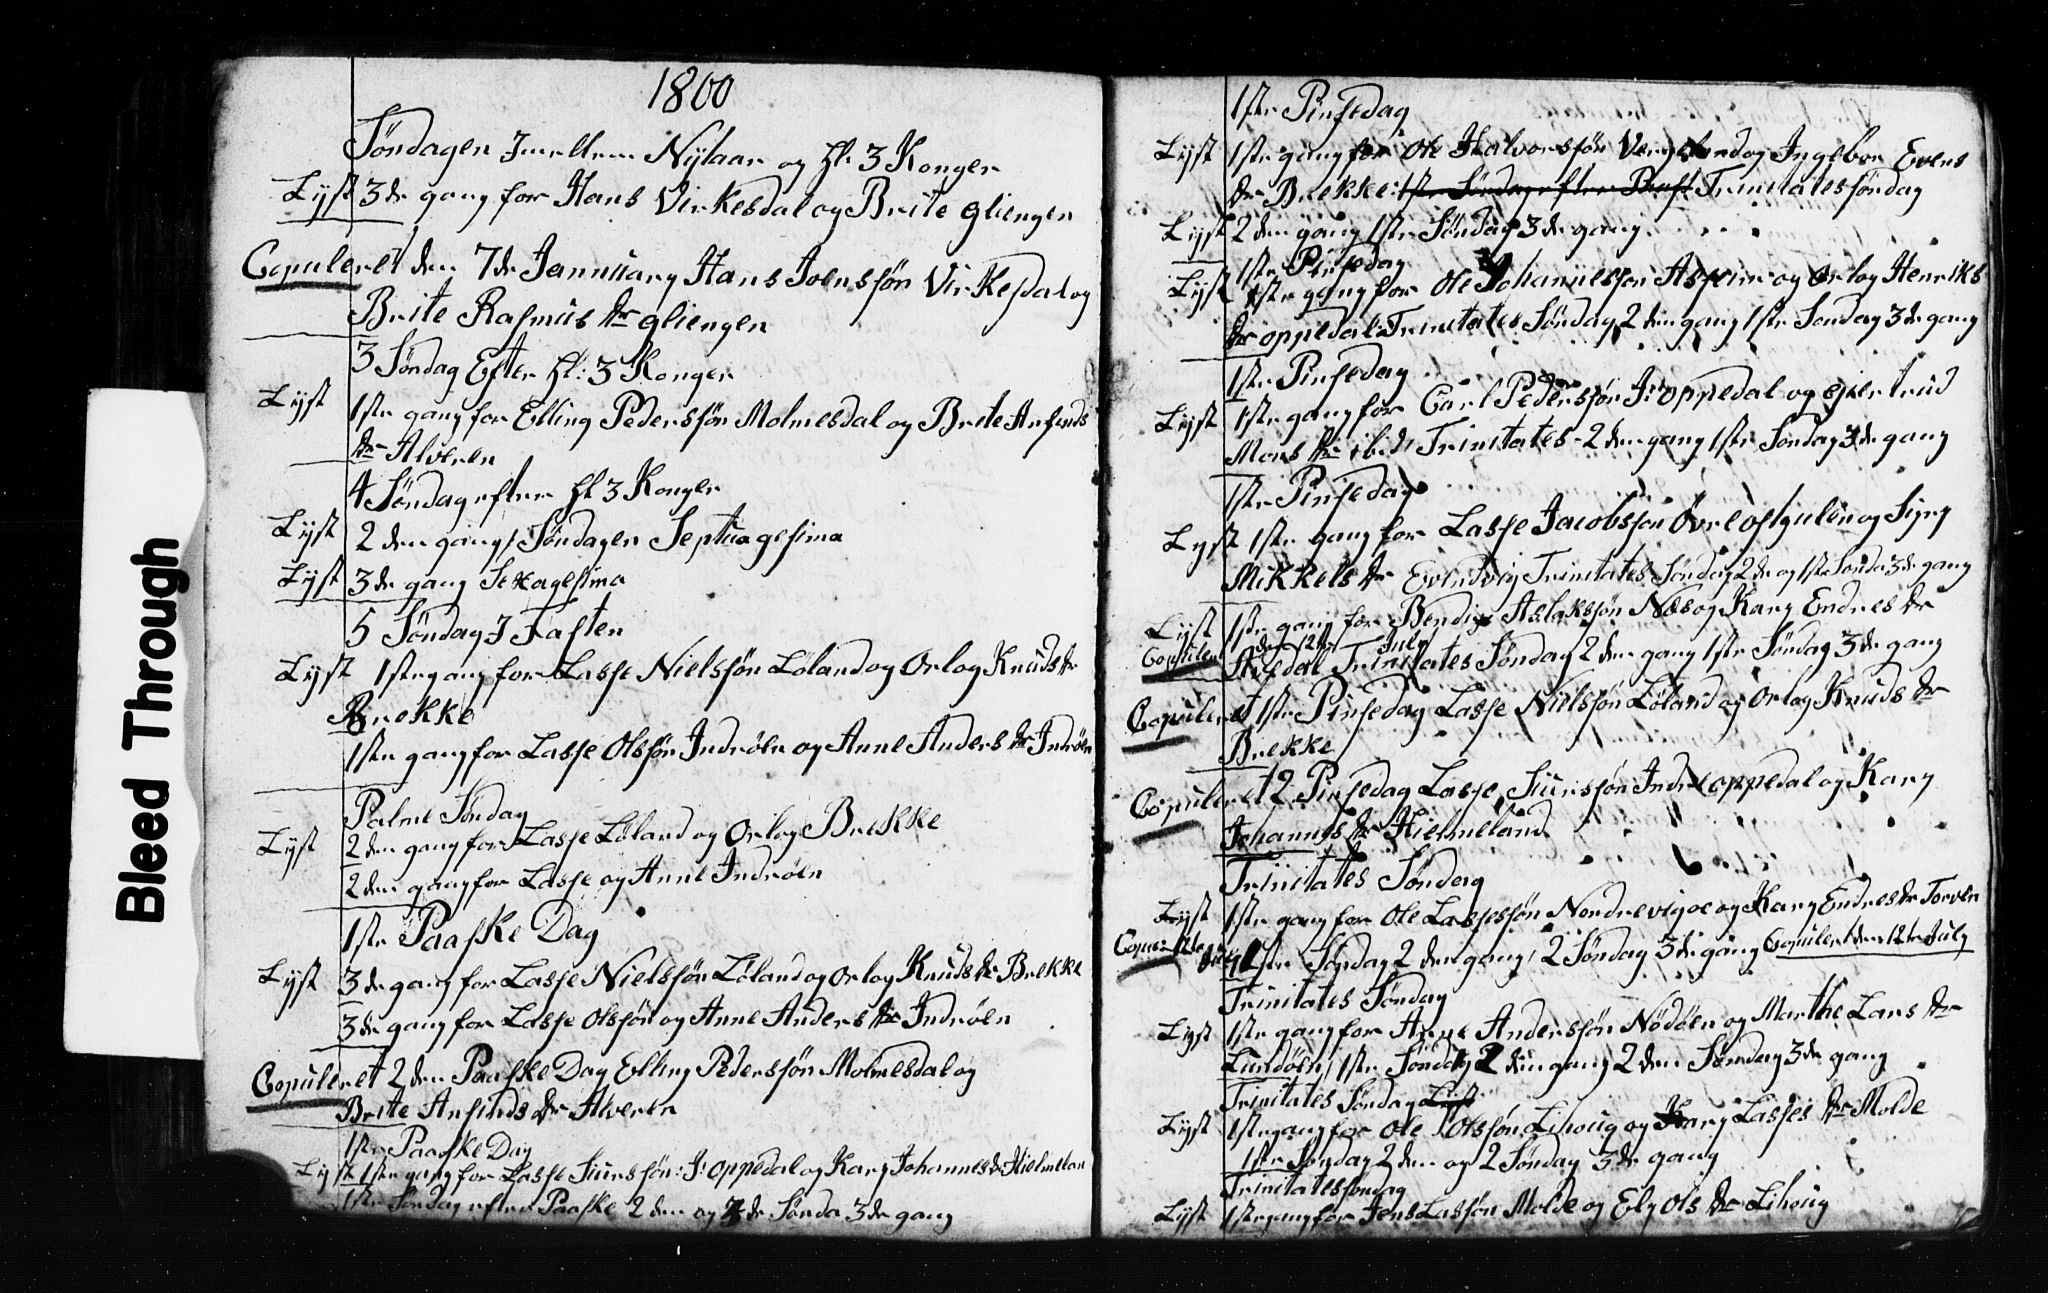 1800
Søndagen Imellem Nylaar og hl: 3 Konger
Lyst 3de gang for Hans Virkesdal og Brite Gliengen
Copuleret den 7de Jannuary Hans Joensøn Virkesdal og
Brite Rasmus dr Gliengen
3 Søndag Efter hl: 3 Konger
Lyst 1ste gang for Elling Pedersøn Molmesdal og Brite Anfinds
dr Alveren
4 Søndag efter hl 3 Konger
Lyst 2den gang, Søndagen Septuagesima
Lyst 3de gang Sexagesima
5 Søndag I Fasten
Lyst 1ste gang for Lasse Nielssøn Løland og Orlog Knuds dr
Brekke
1ste gang for Lasse Olssøn Indrøen og Anne Anders dr Indrøen
Palme Søndag
Lyst 2den gang for Lasse Løland og Orlog Brekke
2den gang for Lasse og Anne Indrøen
1ste Paaske Dag
Lyst 3de gang for Lasse Nielssøn Løland og Orlog Knuds dr Brekke
3de gang for Lasse Olssøn og Anne Anders dr Indrøen
Copuleret 2den Paaske Dag Elling Pederssøn Molmesdal og
Brite Anfinds dr Alveren
1ste Paaske Dag
Lyst 1ste gang for Lasse Siurssøn: I: oppedal og Kary Johannes dr Hielmelan
1ste Søndag efter Paaske 2den og 2de Sønda 3de gang
1ste Pinsedag
Lyst 1ste gang for Ole Halvorssøn og Ingebor Evens
dr Brekke: 1ste Søndag efter Trinitatessøndag
Lyst 2den gang 1ste Søndag 3de gang
1ste Pinsedag
Lyst 1ste gang for Ole Johannessøn Asheim og Orlog Henriks
dr oppedal: Trinitates Søndag 2den gang 1ste Søndag 3de gang
1ste Pinsedag
Lyst 1ste gang for Carl Pederssøn I: oppedal og giertrud
Mons dr ibid: Trinitates 2den gang 1ste Søndag 3de gang
1ste Pinsedag
Lyst 1ste gang for Lasse Jacobssøn Øvreostgulen og Siry
Mikkels dr Evindvig Trinitates Søndag 2de og 1ste Sønda 3de gang
Lyst 1ste gang for Bendix Aslakssøn Næs og Kary Endres dr
Copuleret den 12te July
Trinitates Søndag 2den gang 1ste Søndag 3de gang
Copuleret 1ste Pinsedag Lasse Nielssøn Løland og Orlog Knuds dr
Brekke
Copuleret 2 Pinsedag Lasse Siurssøn Indre oppedal og Kary
Johannes dr Hielmeland
Trinitates Søndag
Lyst 1ste gang for Ole Lassessøn Nordrevigoe og Kary Endres dr Torven
1ste Søndag 2den gang, 2 Søndag 3de gang Copuleret den 12te July
Copu: 12te July
Trinitates Søndag
Lyst 1ste gang for Anne Anderssøn Nødøen og Marthe Lars dr
Lundøen, 1ste Søndag 2den gang 2den Søndag 3de gang
Trinitates Søndag Lyst
Lyst 1ste gang for Ole Olssøn Lihoug og Kary Lasses dr Molde
1ste Søndag 2den og 2 Søndag 3de gang
Trinitatessøndag
Lyst 1ste gang for Jens Lassøn Molde og Ely Ols dr Lihoug
Bleed Through